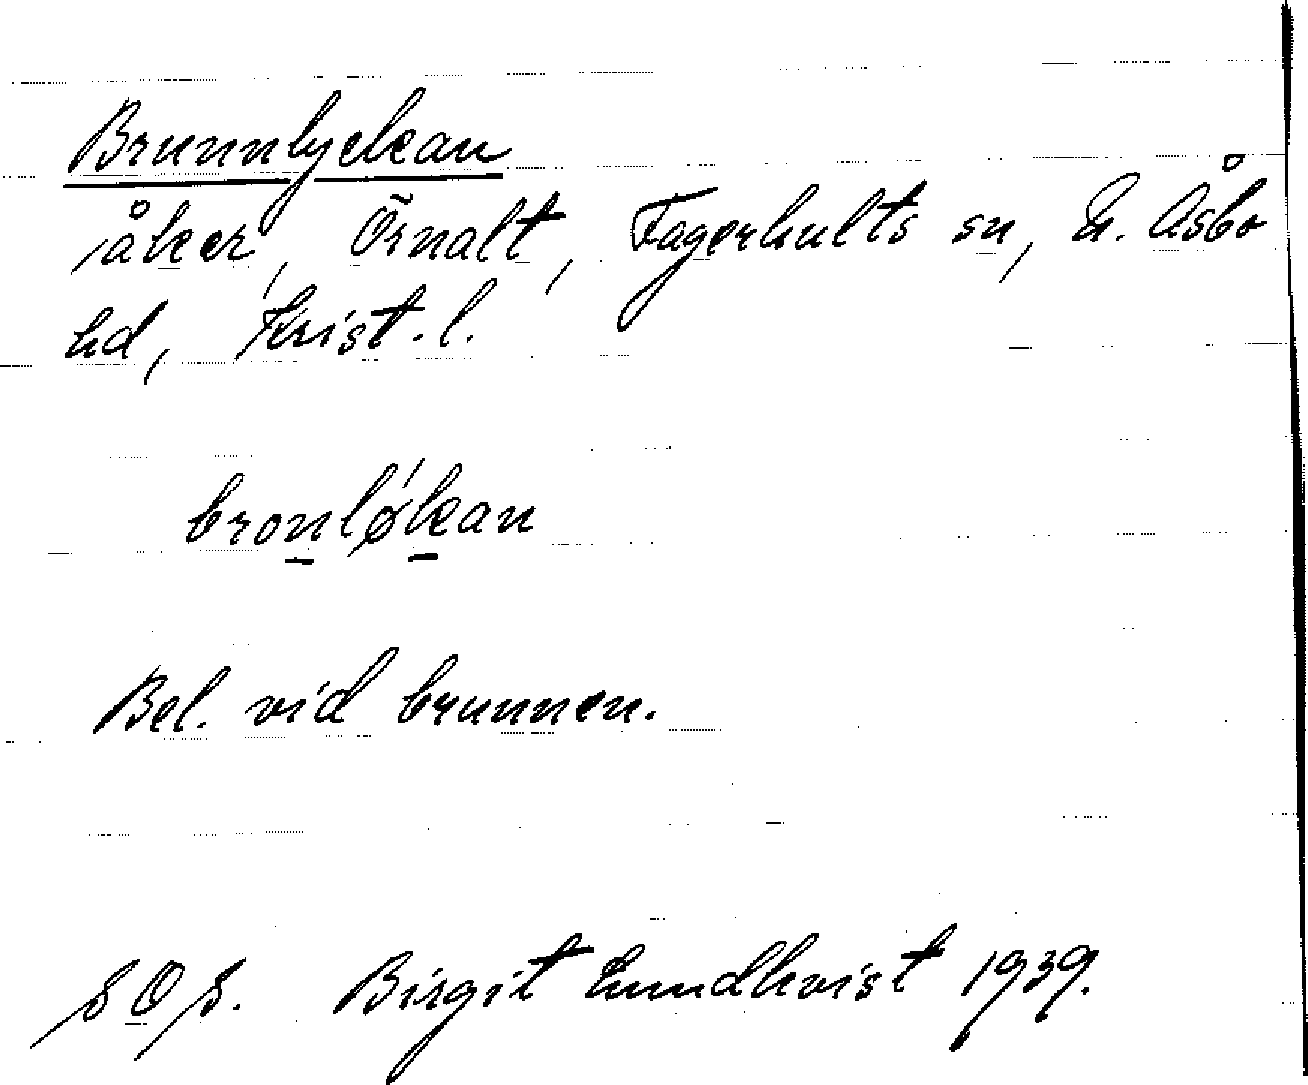 Brunnlyckan
åker, Örnalt, Fagerhults sn, N. Åsbo
hd, Krist. l.
bronlø'kan
Bel. vid brunnen.
SOS. Birgit Lundkvist 1939.